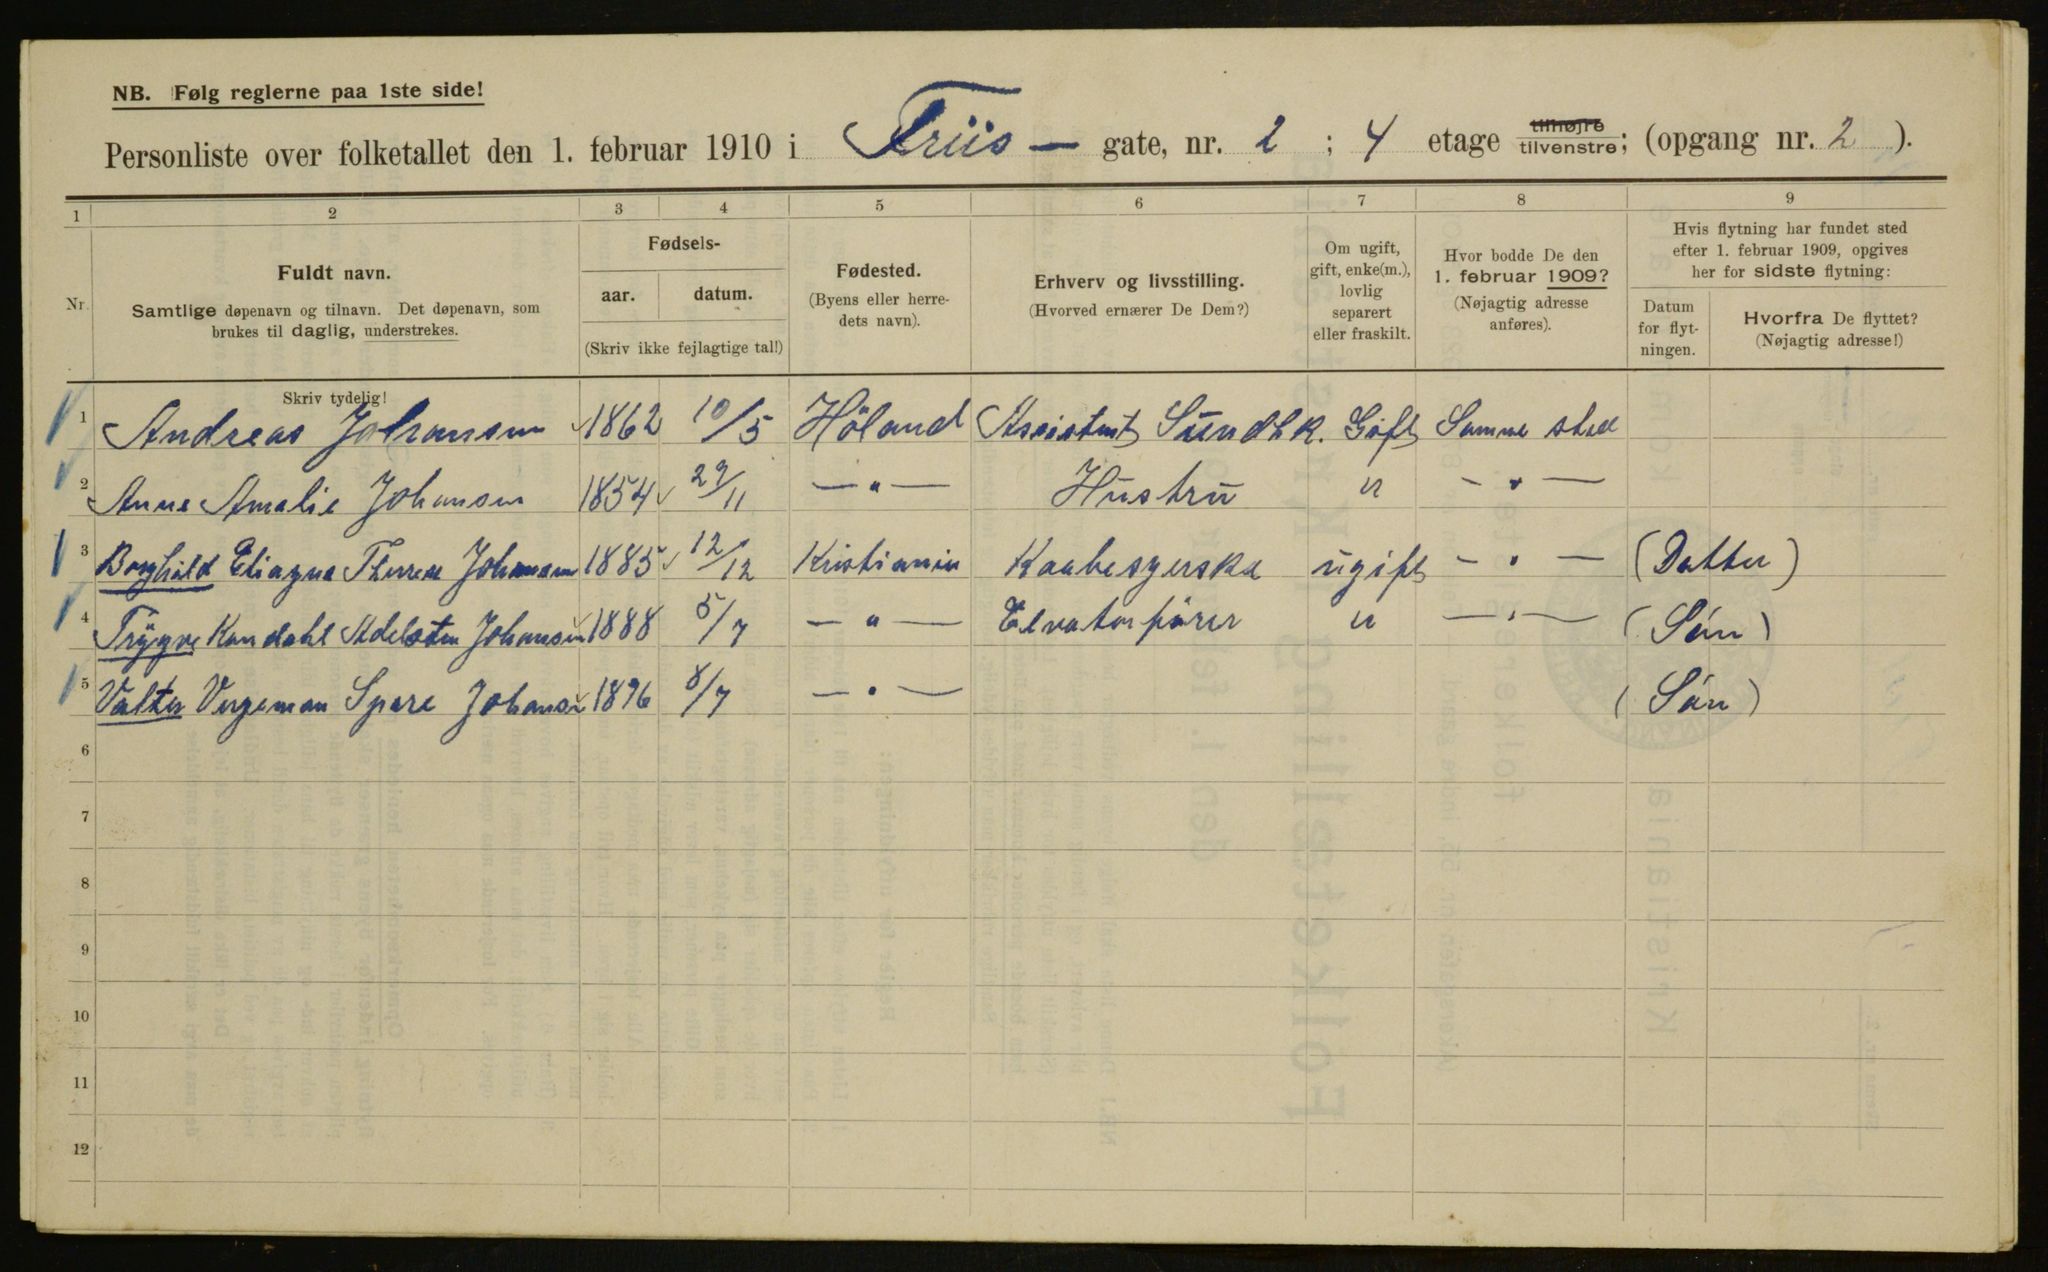 NB. Følg reglerne paa 1ste side!
Personliste over folketallet den 1. februar 1910 i Friis — gate, nr. 2 ; 4 etage tilhøjre tilvenstre; (opgang nr. 2 ).
1 2 3 4 5 6 7 8 9
Nr. Fuldt navn. Samtlige døpenavn og tilnavn. Det døpenavn, som brukes til daglig, understrekes.
Fødsels- aar. datum. (Skriv ikke fejlagtige tal!)
Fødested. (Byens eller herredets navn).
Erhverv og livsstilling. (Hvorved ernærer De Dem?)
Om ugift, gift, enke(m.), lovlig separert eller fraskilt.
Hvor bodde De den 1. februar 1909? (Nøjagtig adresse anføres).
Hvis flytning har fundet sted efter 1. februar 1909, opgives her for sidste flytning:
Datum for flytningen. Hvorfra De flyttet? (Nøjagtig adresse!)
Skriv tydelig!
1 Andreas Johansen 1862 10/5 Höland Assistent Sundhk. Gift Samme sted
2 Anne Amalie Johansen 1854 29/11 — „ — Hustru " — „ —
3 Borghild Therese Johansen 1885 12/12 Kristiania ugift — „ — (Datter)
4 Trygve Adelsten Johansen 1888 5/7 — „ — Elvatorförer " — „ — (Sön)
5 Valter Johansen 1896 8/7 — „ — (Sön)
6
7
8
9
10
11
12